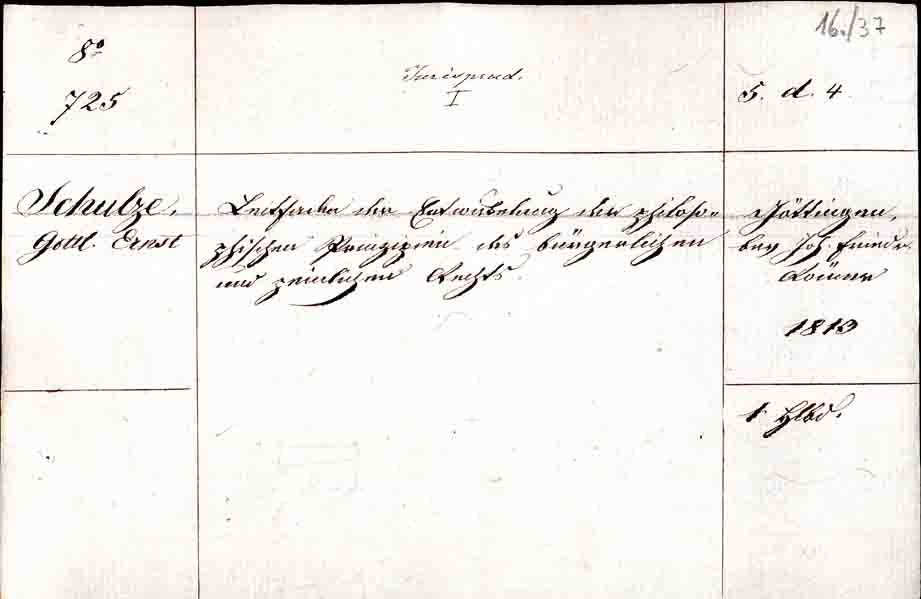 8°
725
Jurisprud.
I
16./37
5. d. 4
Schulze,
Gottl. Ernst
Leitfaden der Entwickelung der philoso-
phischen Prinzipien des bürgerlichen
und peinlichen Rechts.
Göttingen,
bey Joh. Friedr.
Römer
1813
1 Hlbd.